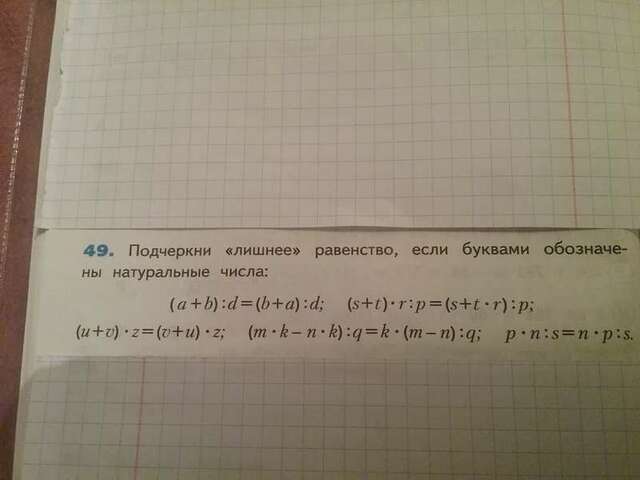 49. Подчеркни «лишнее» равенство, если буквами обозначе-
ны натуральные числа:
(a+b):d=(b+a):d; (s+t)·r:p=(s+t·r):p;
(u+v)·z=(v+u)·z; (m·k–n·k):q=k·(m–n):q; p·n:s=n·p:s.